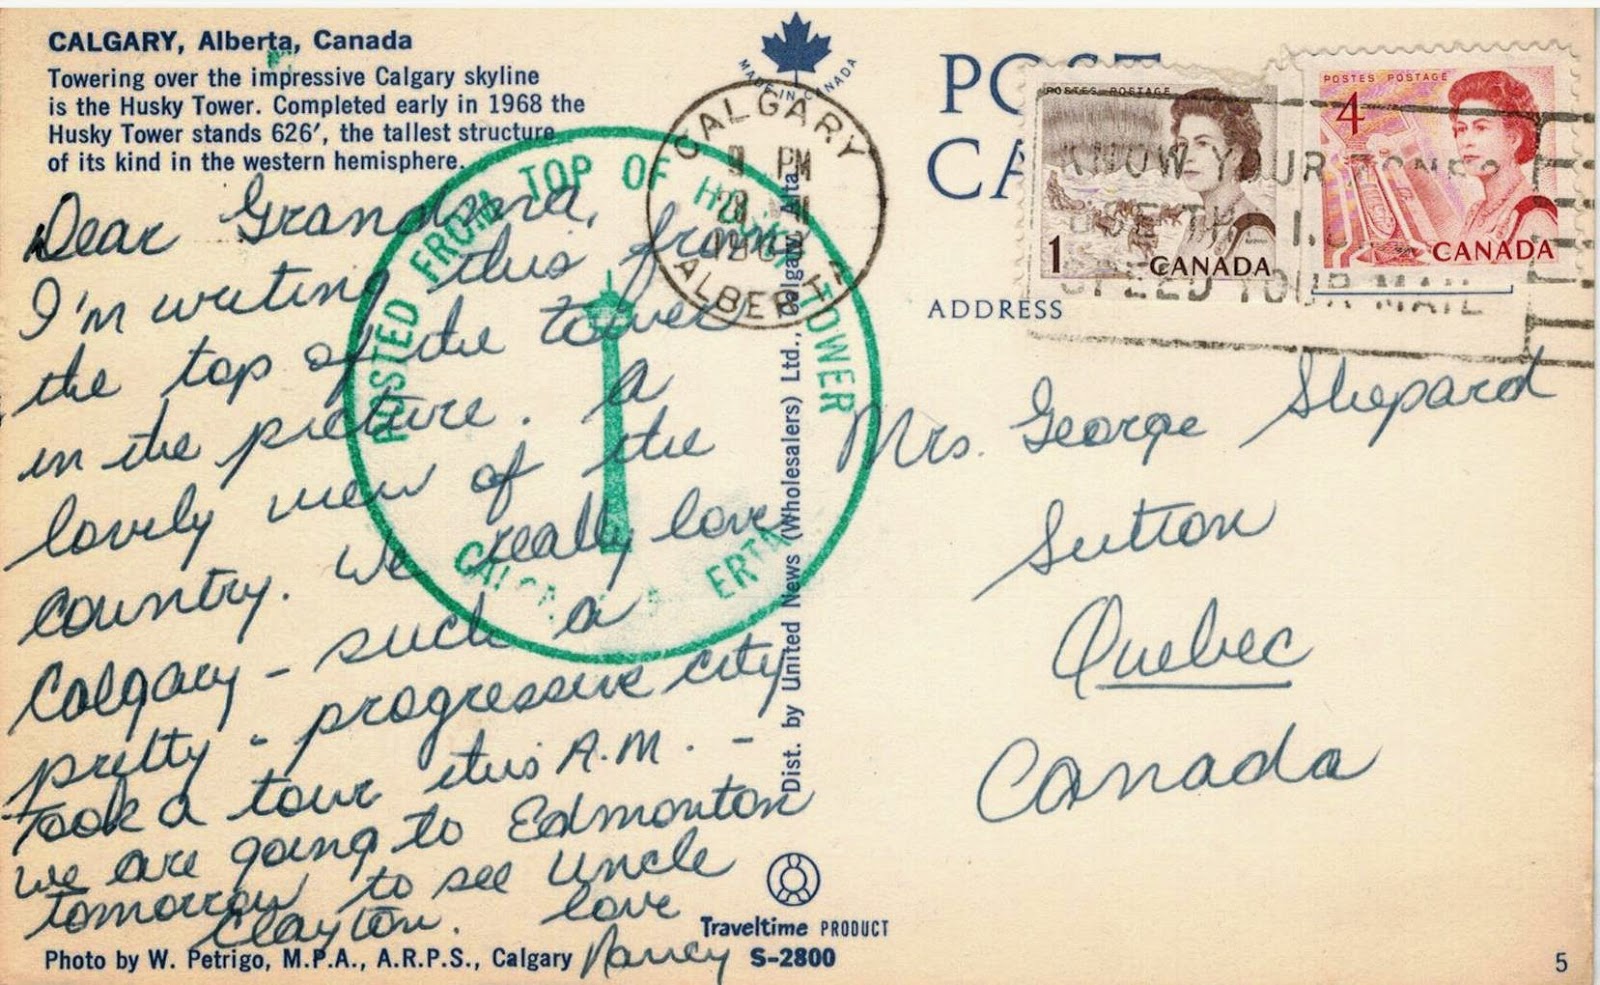 CALGARY, Alberta, Canada
Towering over the impressive Calgary skyline
is the Husky Tower. Completed early in 1968 the
Husky Tower stands 626', the tallest structure
of its kind in the western hemisphere.
Dear Grandma,
I'm writing this from
the top of the tower
in the picture. A
lovely view of the
country. We really love
Calgary - such a
pretty - progressive city
Took a tour this A.M. -
we are going to Edmonton
tomorrow to see Uncle
Clayton. love
Nancy
Photo by W. Petrigo, M.P.A., A.R.P.S., Calgary
POSTED FROM TOP OF HUSKY TOWER
CALGARY ALBERTA
MADE IN CANADA
CALGARY
9 PM
ALBERTA
Dist. by United News (Wholesalers) Ltd., Calgary, Alta.
Traveltime PRODUCT
S-2800
POST
CA
POSTES POSTAGE
1
CANADA
POSTES POSTAGE
4
CANADA
KNOW YOUR ZONES
USE THE
SPEED YOUR MAIL
ADDRESS
Mrs. George Shepard
Sutton
Quebec
Canada
5